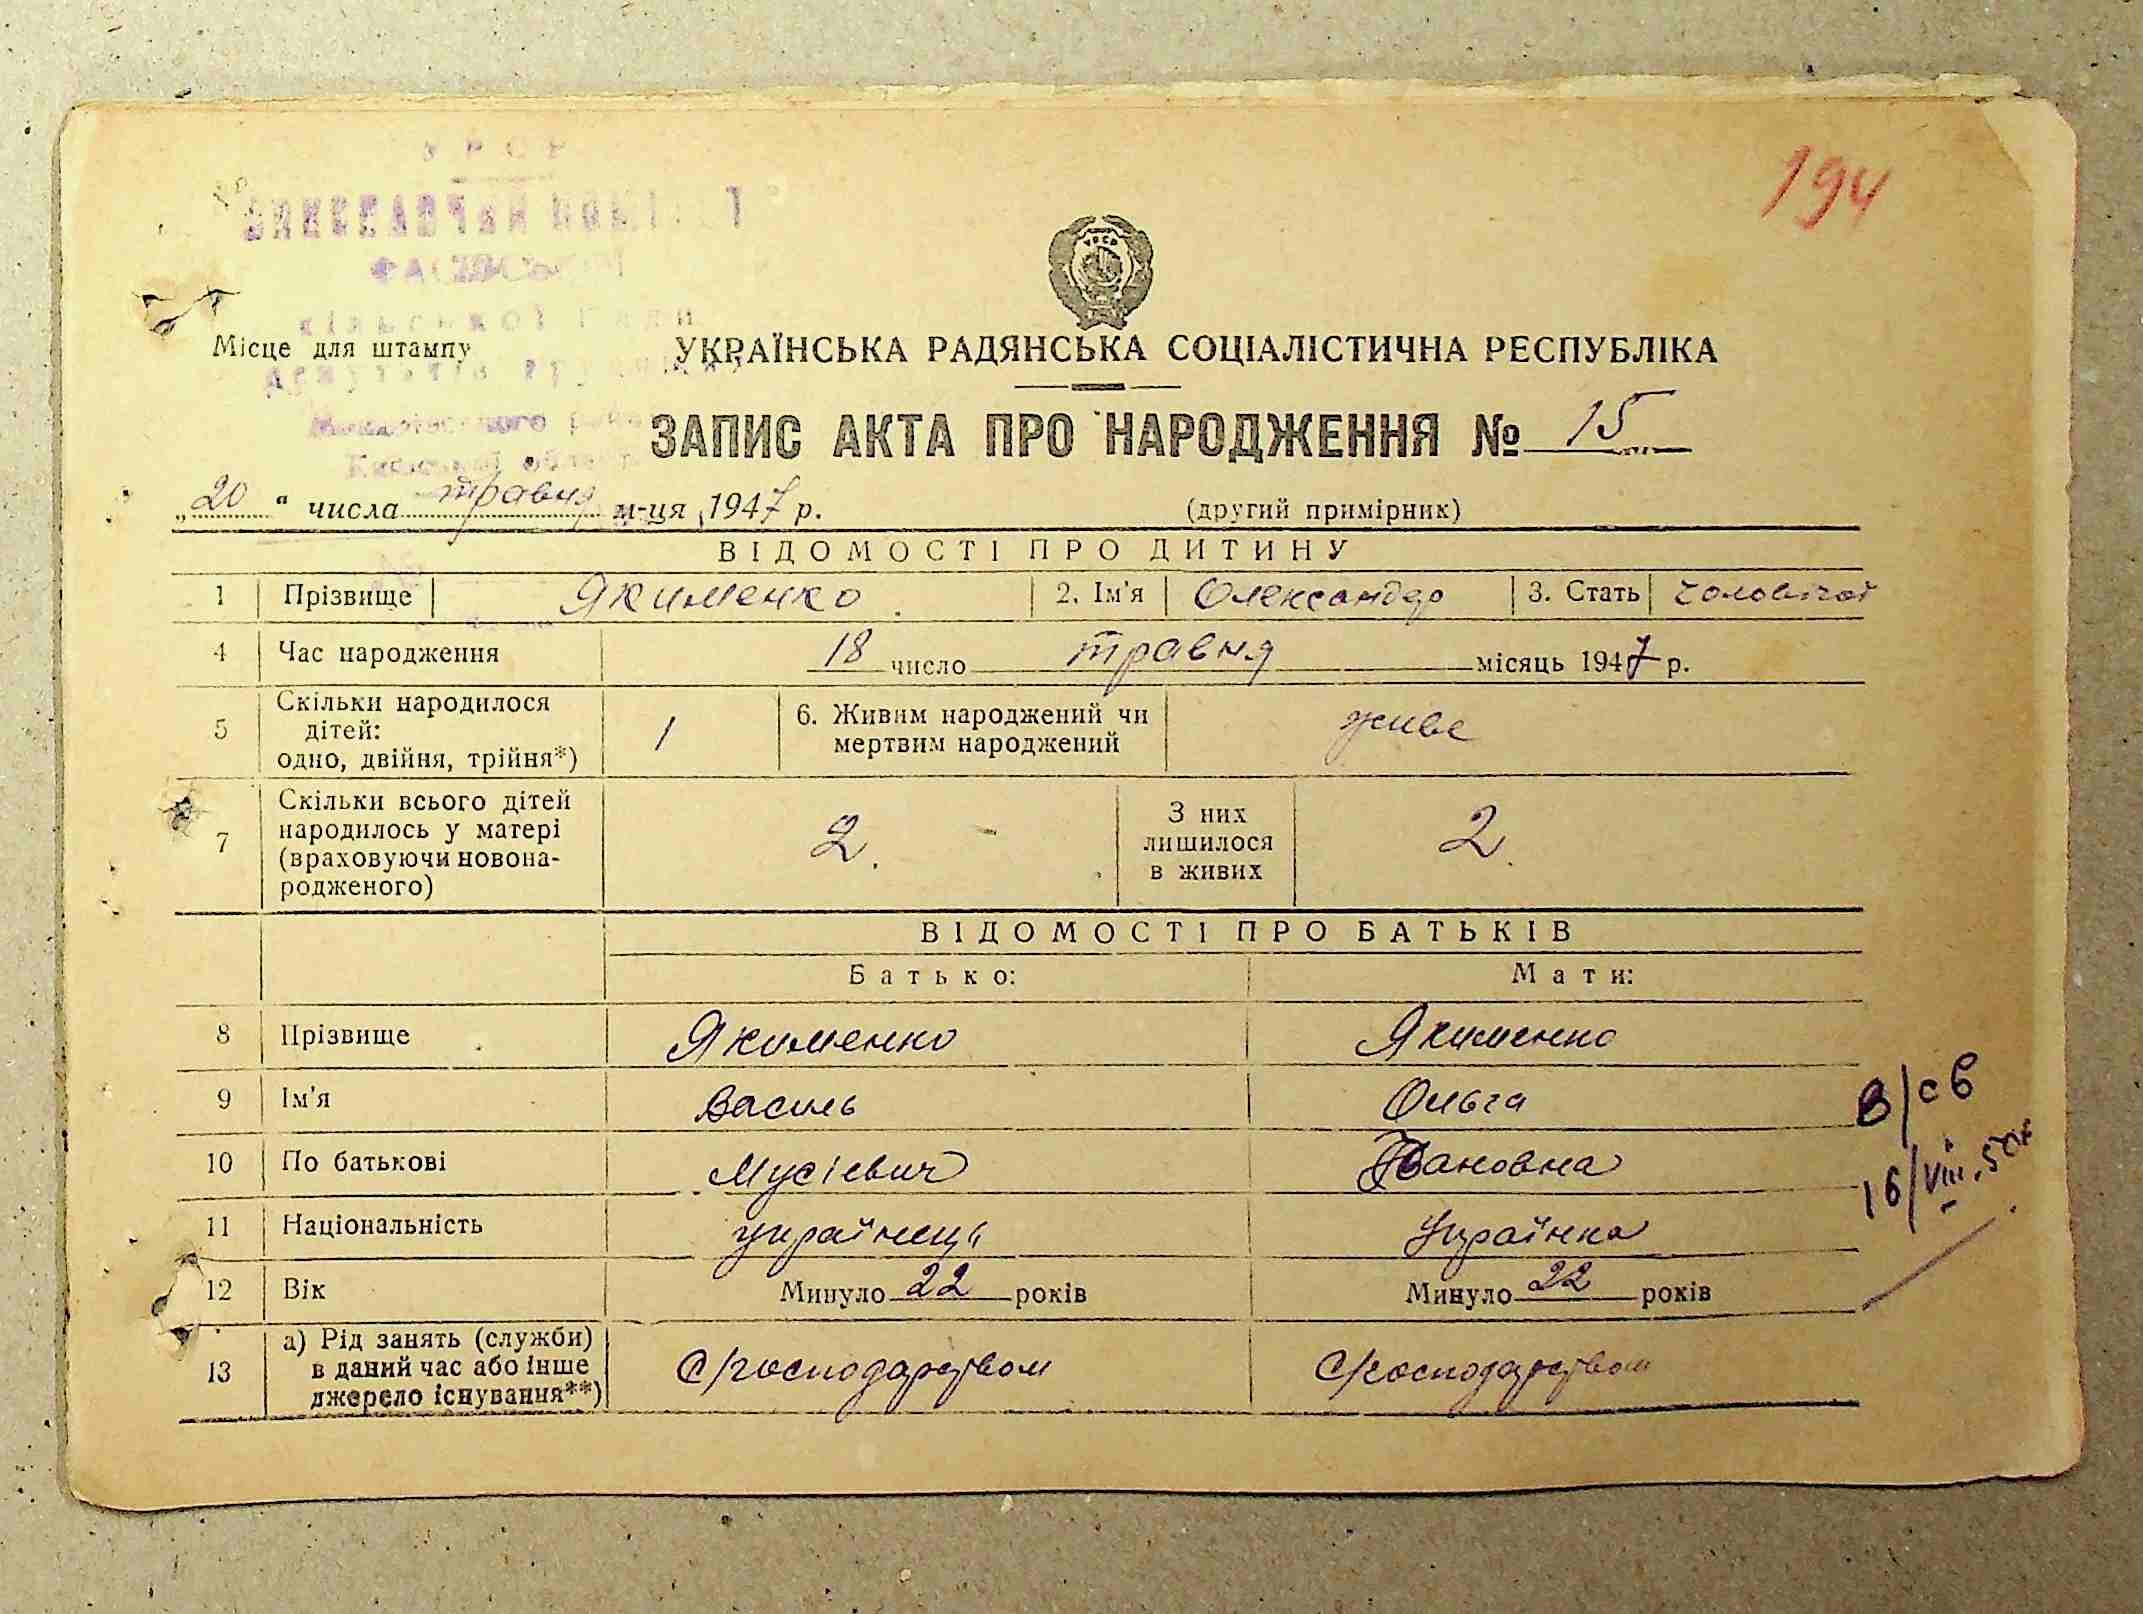 194
УРСР
Місце для штампу
УКРАЇНСЬКА РАДЯНСЬКА СОЦІАЛІСТИЧНА РЕСПУБЛІКА
ЗАПИС АКТА ПРО НАРОДЖЕННЯ № 15
„20“ числа травня м-ця 1947 р. (другий примірник)
ВІДОМОСТІ ПРО ДИТИНУ
1 Прізвище Якименко 2. Ім'я Олександр 3. Стать чоловічої
4 Час народження 18 число травня місяць 1947 р.
5 Скільки народилося дітей: одно, двійня, трійня*) 1 6. Живим народжений чи мертвим народжений живе
7 Скільки всього дітей народилось у матері (враховуючи новонародженого) 2. З них лишилося в живих 2.
ВІДОМОСТІ ПРО БАТЬКІВ
Батько: Мати:
8 Прізвище Якименко Якименко
9 Ім'я Василь Ольга
10 По батькові Мусієвич Івановна
11 Національність українець Українка
12 Вік Минуло 22 років Минуло 22 років
13 а) Рід занять (служби) в даний час або інше джерело існування**) С/господарством С/господарством
В/св
16/VIII.50